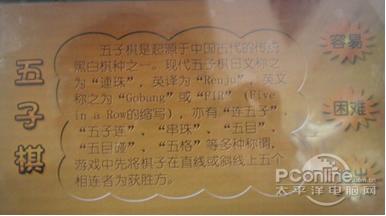 五子棋
五子棋是起源于中国古代的传统
黑白棋种之一。现代五子棋日文称之
为“连珠”，英译为“Renju”，英文
称之为“Gobang”或“FIR”(Five
in a Row的缩写)，亦有“连五子”、
“五子连”、“串珠”、“五目”、
“五目碰”、“五格”等多种称谓。
游戏中先将棋子在直线或斜线上五个
相连者为获胜方。
容易
困难
PConline
.com.cn
太平洋电脑网